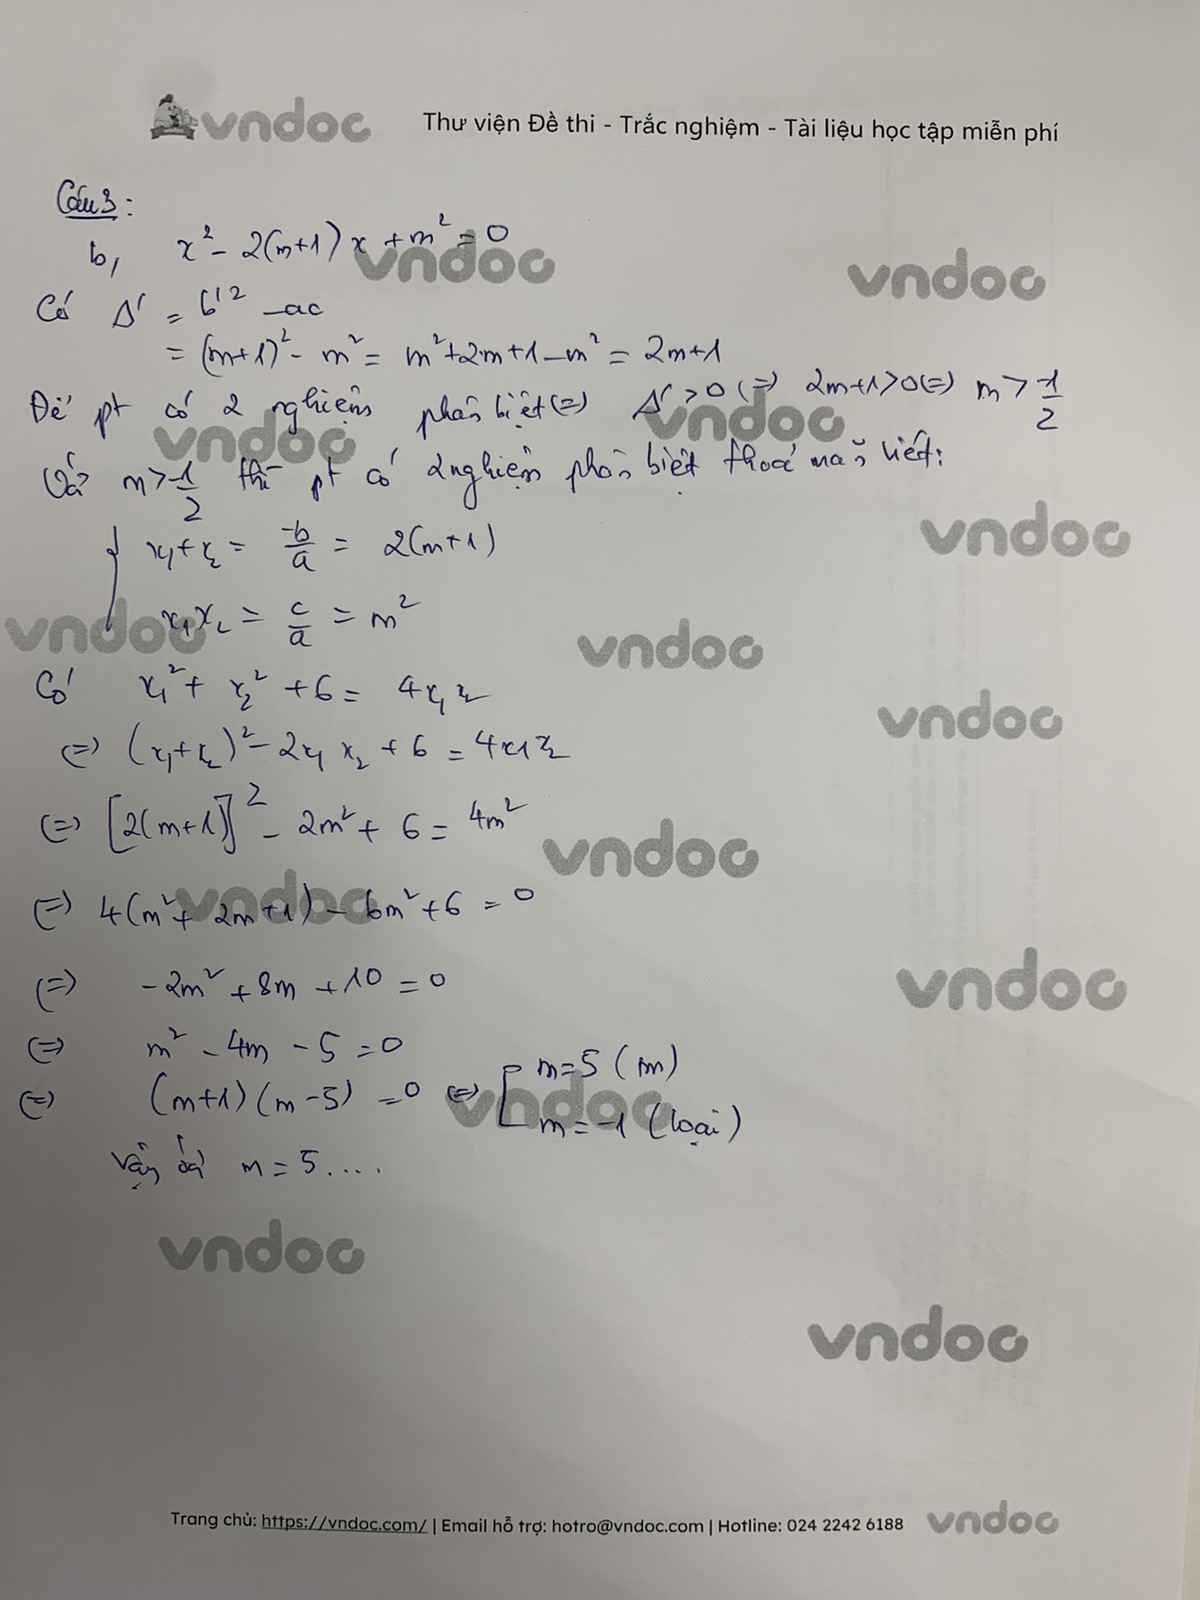 vndoc Thư viện Đề thi - Trắc nghiệm - Tài liệu học tập miễn phí
Câu 3:
b, x² - 2(m+1)x + m² = 0
vndoc
vndoc
Có Δ' = b'² - ac
= (m+1)² - m² = m² + 2m + 1 - m² = 2m+1
Để pt có 2 nghiệm phân biệt (=) Δ' > 0 (=) 2m+1 > 0 (=) m > -1/2
vndoc
vndoc
Với m > -1/2 thì pt có 2 nghiệm phân biệt thoả mãn Viét:
vndoc
{ x₁ + x₂ = -b/a = 2(m+1)
x₁x₂ = c/a = m²
vndoc
vndoc
Có x₁² + x₂² + 6 = 4x₁x₂
vndoc
(=) (x₁ + x₂)² - 2x₁x₂ + 6 = 4x₁x₂
(=) [2(m+1)]² - 2m² + 6 = 4m²
vndoc
(=) 4(m² + 2m + 1) - 6m² + 6 = 0
vndoc
(=) -2m² + 8m + 10 = 0
vndoc
(=) m² - 4m - 5 = 0
(=) (m+1)(m-5) = 0 (=) [ m = 5 (tm)
m = -1 (loại)
vndoc
Vậy m = 5 ....
vndoc
vndoc
Trang chủ: https://vndoc.com/ | Email hỗ trợ: hotro@vndoc.com | Hotline: 024 2242 6188 vndoc